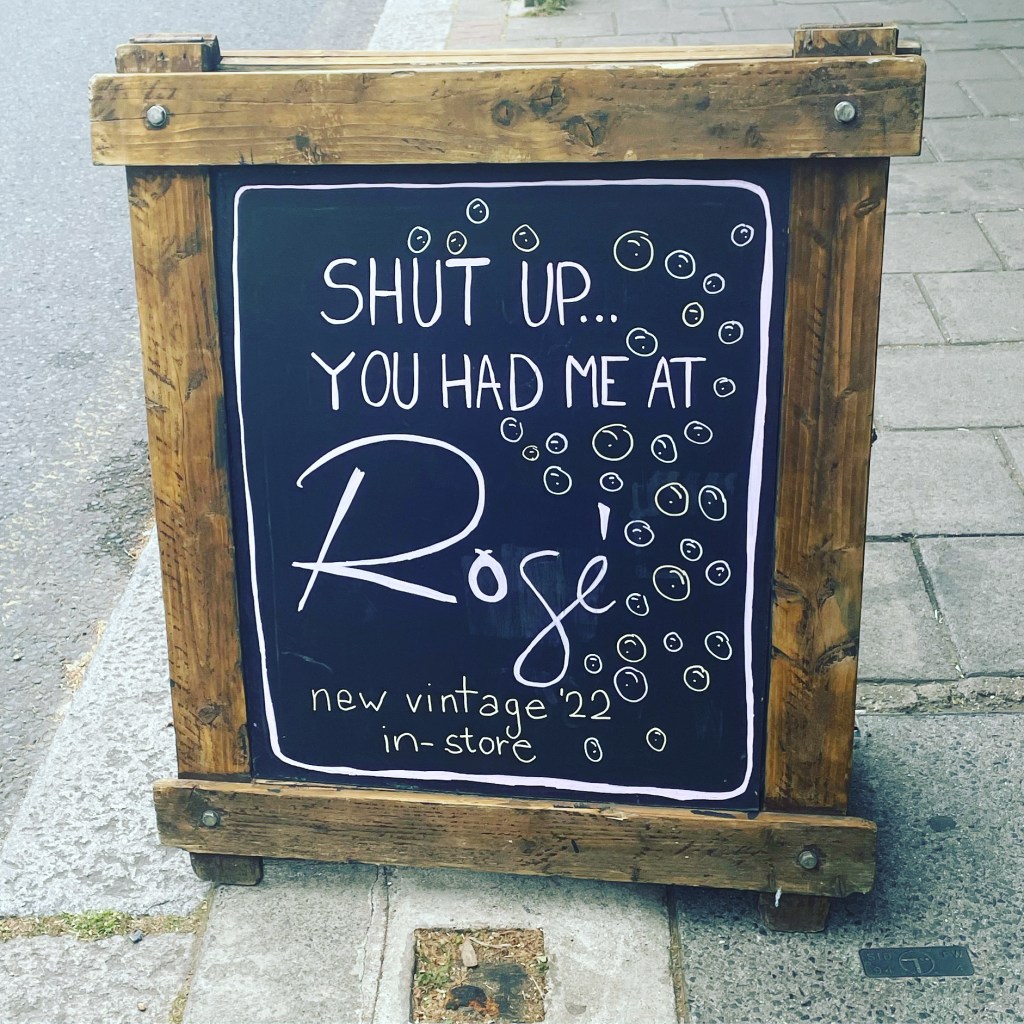 SHUT UP...
YOU HAD ME AT
Rosé
new vintage '22
in-store